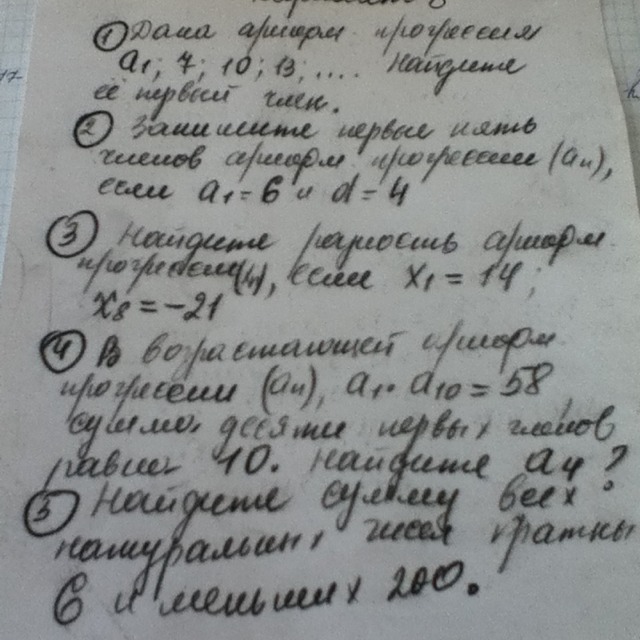 ① Дана арифм. прогрессия
a1; 7; 10; 13; .... Найдите
её первый член.
② Запишите первые пять
членов арифм. прогрессии (an),
если a1 = 6 и d = 4
③ Найдите разность арифм.
прогрессии если x1 = 14;
x8 = -21
④ В возрастающей арифм.
прогрессии (an), a1. a10 = 58
сумма десяти первых членов
равна 10. Найдите a4?
⑤ Найдите сумму всех
натуральных чисел кратны
6 и меньших 200.